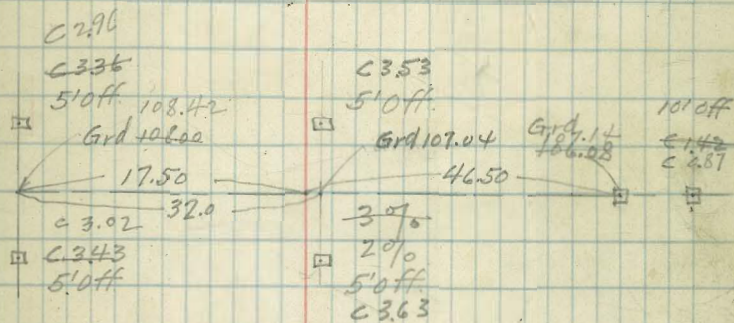 C 2.96
C 336
5' Off
108.42
Grd 108.00
17.50
32.0
C 3.02
C 3.43
5' Off
C 3.53
5' Off
Grd 107.04
3%
2%
5' Off
C 3.63
46.50
Grd 107.14
106.08
10' Off
C 1.42
C 2.87